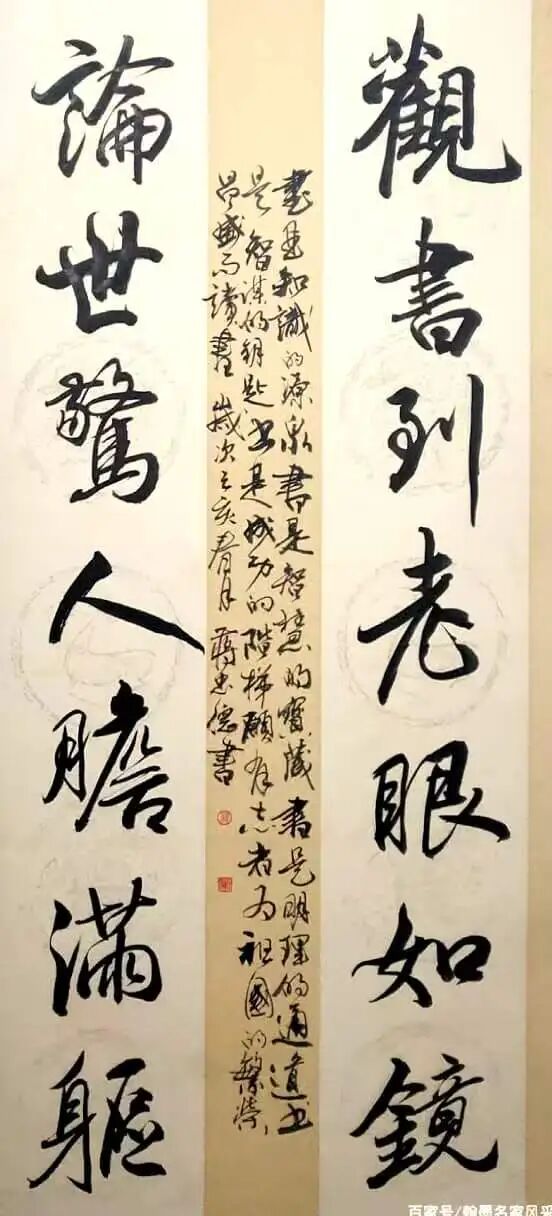 觀書到老眼如鏡
書是知識的源泉書是智慧的寶藏書是明理的通道書
是智謀的鑰匙書是成功的階梯願有志者為祖國的繁榮
昌盛而讀書 歲次己亥春月 蔣忠德書
論世驚人膽滿軀
百家号/翰墨名家风采